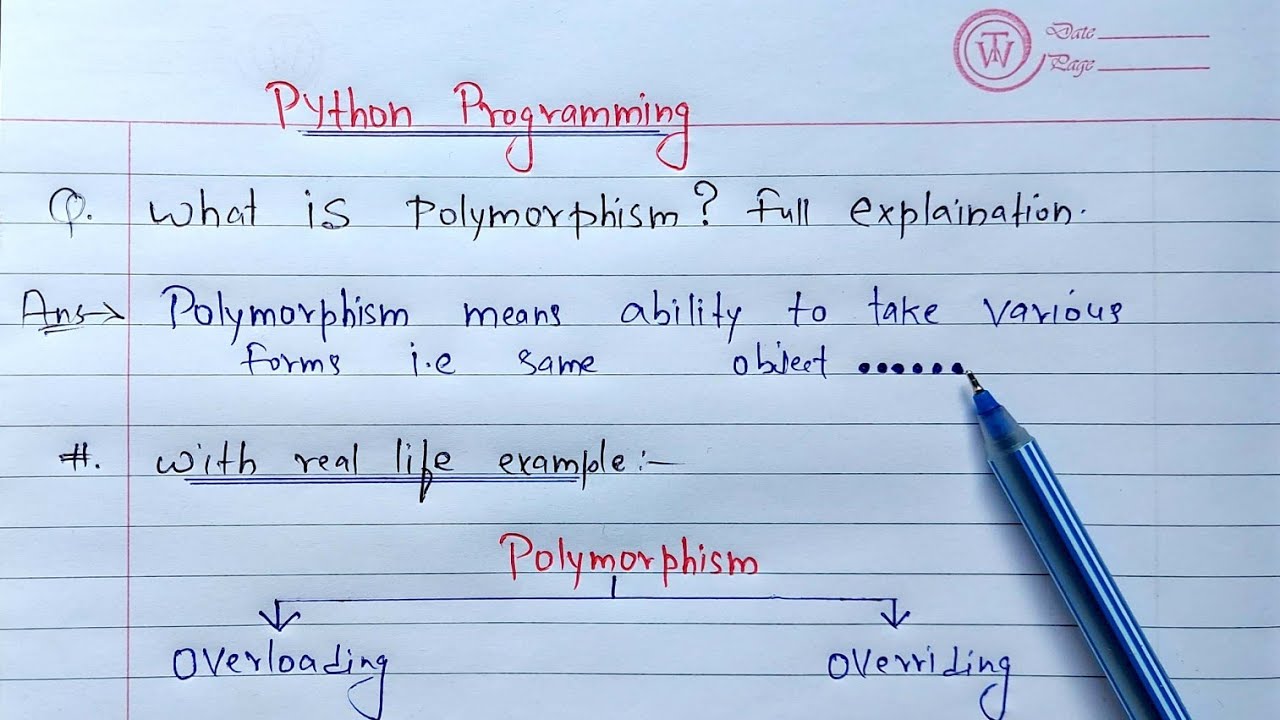 Date
Page
Python Programming
Q. What is polymorphism? full explaination.
Ans→ Polymorphism means ability to take various
forms i.e same object ......
#. with real life example:-
Polymorphism
Overloading Overriding